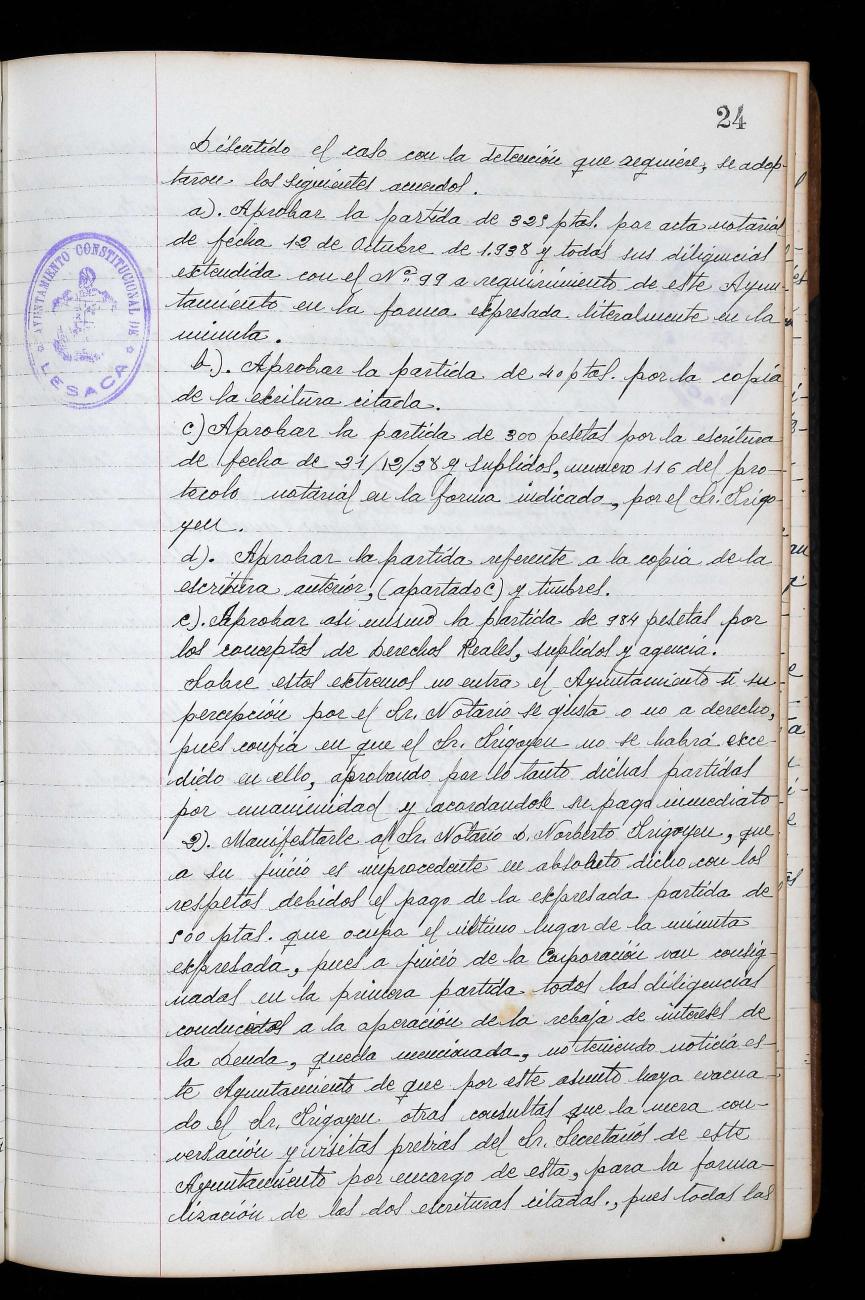 24
Discutido el caso con la detención que requiere, se adop-
taron los siguientes acuerdos.
a). Aprobar la partida de 325 ptas. por acta notarial
de fecha 12 de Octubre de 1.938 y todas sus diligencias
extendida con el Nº 99 a requirimiento de este Ayun-
tamiento en la forma expresada literalmente en la
minuta.
b). Aprobar la partida de 40 ptas. por la copia
de la escritura citada.
c) Aprobar la partida de 300 pesetas por la escritura
de fecha de 21/12/38 y suplidos, numero 116 del pro-
tocolo notarial en la forma indicada, por el Sr. Irigo-
yen.
d). Aprobar la partida referente a la copia de la
escritura anterior, (apartado c) y timbres.
e). Aprobar asi mismo la partida de 984 pesetas por
los conceptos de Derechos Reales, suplidos y agencia.
Sobre estos extremos no entra el Ayuntamiento si su
percepción por el Sr. Notario se ajusta o no a derecho,
pues confia en que el Sr. Irigoyen no se habrá exce-
dido en ello, aprobando por lo tanto dichas partidas
por unanimidad y acordandose su pago inmediato
2). Manifestarle al Sr. Notario D. Norberto Irigoyen, que
a su juicio es improcedente en absoluto dicho con los
respetos debidos el pago de la expresada partida de
500 ptas. que ocupa el último lugar de la minuta
expresada, pues a juicio de la Corporación van consig-
nadas en la primera partida todas las diligencias
conducentes a la operación de la rebaja de intereses de
la Deuda, queda mencionada, no teniendo noticia es-
te Ayuntamiento de que por este asunto haya evacua-
do el Sr. Irigoyen otras consultas que la mera con-
versación y visitas previas del Sr. Secretarios de este
Ayuntamiento por encargo de esta, para la forma-
lización de las dos escrituras citadas., pues todas las
AYUNTAMIENTO CONSTITUCIONAL DE
LESACA